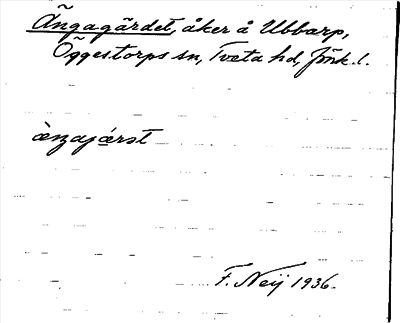 Ängagärdet, åker å Ubbarp,
Öggestorps sn, Tveta hd, Jönk. l.
ængajæ̀rst
F. Neij 1936.